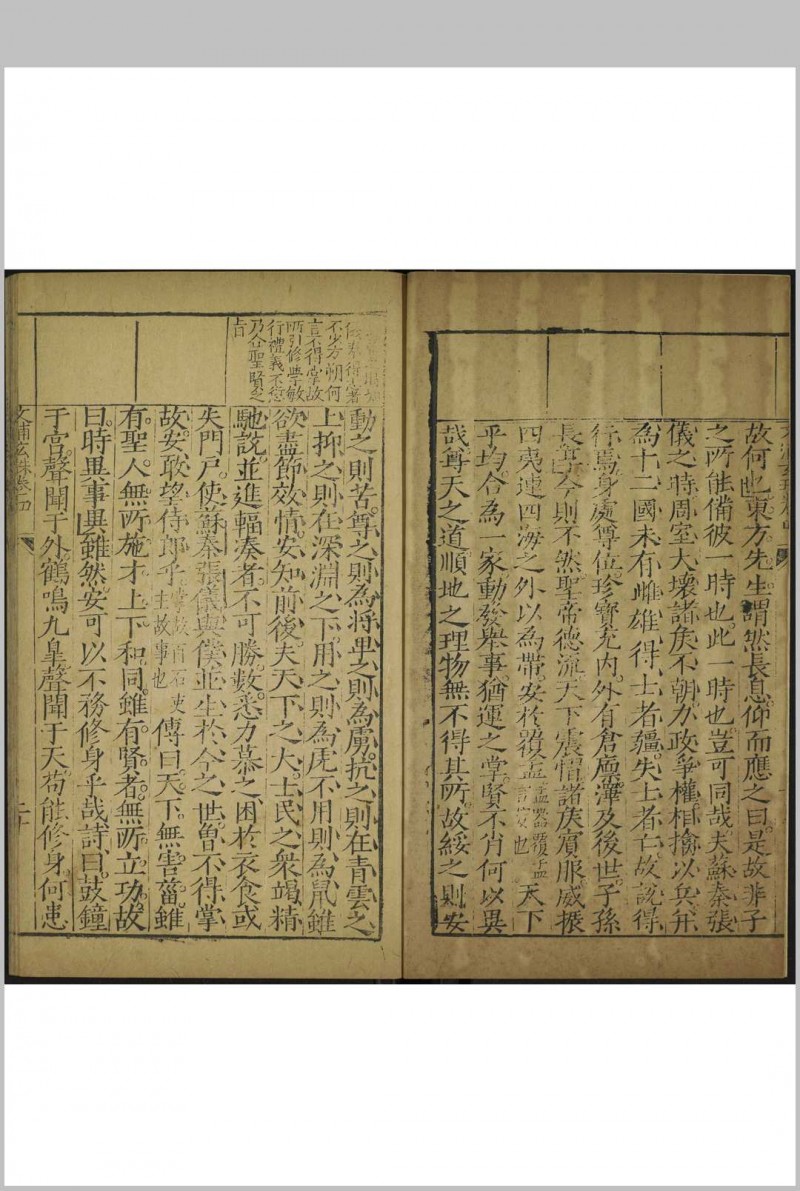 故何也東方先生謂然長息仰而應之曰是故非子
之所能備彼一時也此一時也豈可同哉夫蘇秦張
儀之時周室大壞諸矦不朝力政爭權相擒以兵并
為十二國未有雌雄得士者彊失士者亡故說得
行焉身處尊位珍寶充內外有倉廩澤及後世子孫
長享今則不然聖帝德流天下震慴諸矦賓服威振
四夷連四海之外以為帶安於覆盂
言安也盂器覆盂
天下
平均合為一家動發舉事猶運之掌賢不肖何以異
哉尊天之道順地之理物無不得其所故綏之則安
不必方朔何
言不得掌故
所引修學敏
行禮義不愆
乃合聖賢之
旨
動之則苦尊之則為將卑之則為虜抗之則在青雲之
上抑之則在深淵之下用之則為虎不用則為鼠雖
欲盡節效情安知前後夫天下之大士民之衆竭精
馳說並進輻湊者不可勝數悉力慕之困於衣食或
失門戶使蘇秦張儀與僕並生於今之世曾不得掌
故安敢望侍郎乎
掌故百石吏
主故事也
傳曰天下無害菑雖
有聖人無所施才上下和同雖有賢者無所立功故
曰時異事異雖然安可以不務修身乎哉詩曰鼓鐘
于宮聲聞于外鶴鳴九皋聲聞于天苟能修身何患
卷四